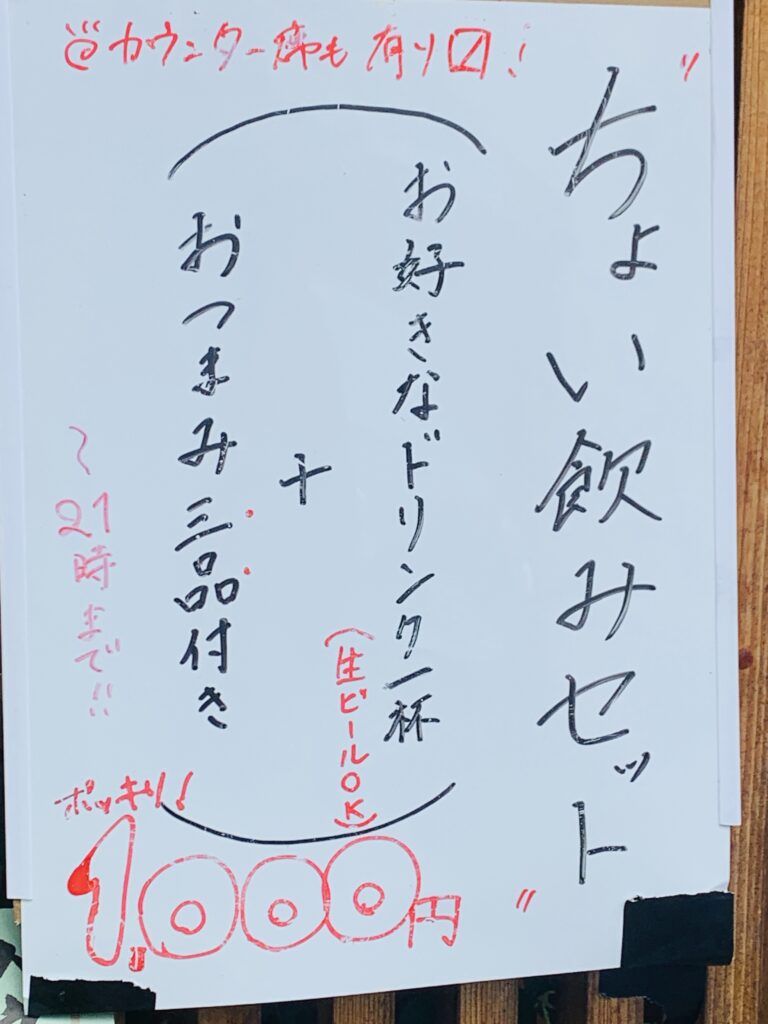 カウンター席も有り〼!
"ちょい飲みセット"
(お好きなドリンク一杯
(生ビールOK)
+
おつまみ三品付き)
〜21時まで!!
ポッキリ!
1,000円